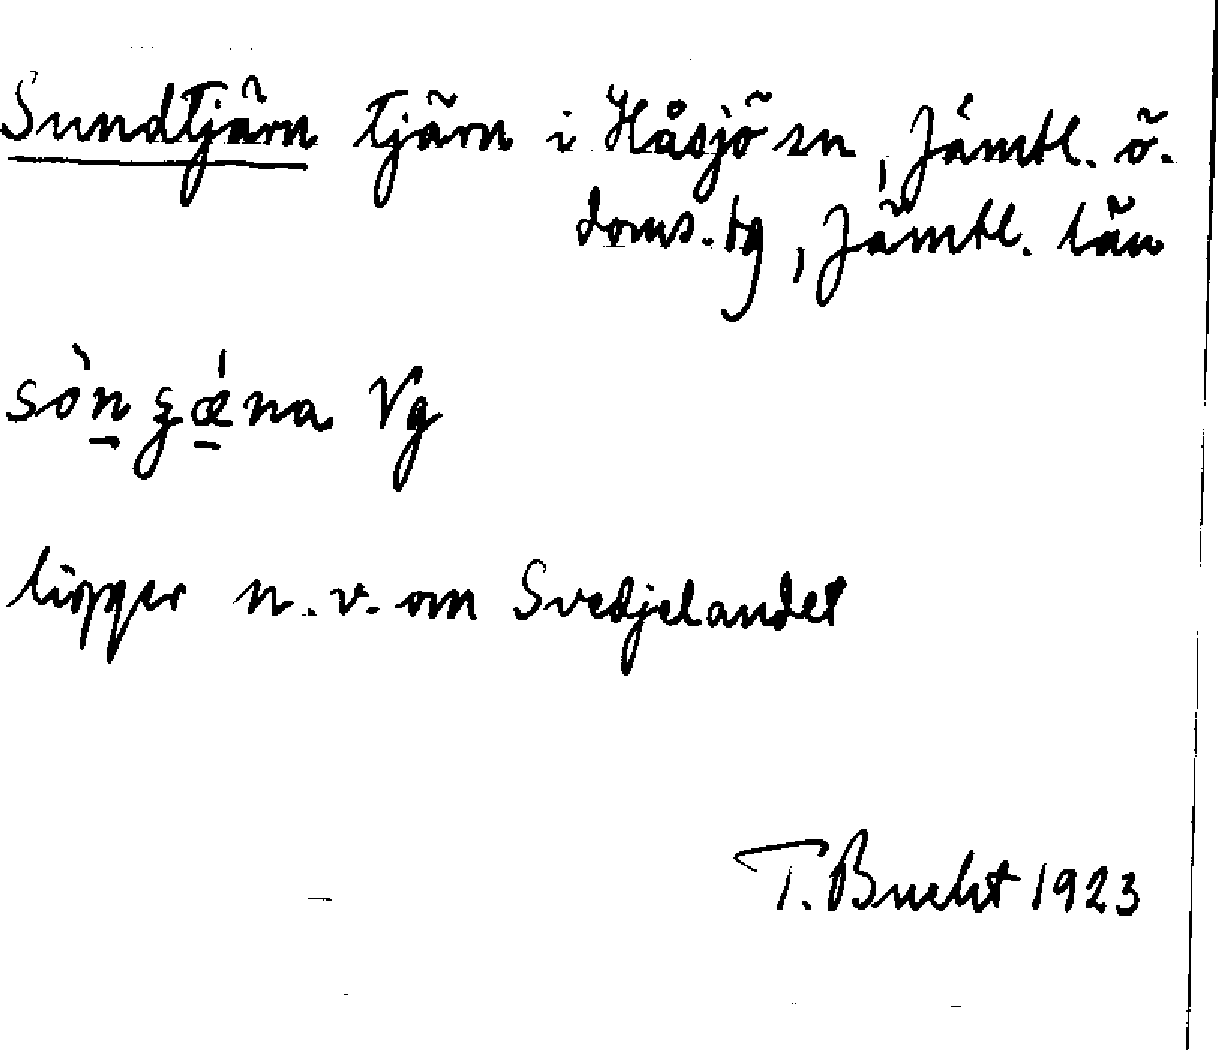 Sundtjärn tjärn i Håsjö sn, Jämtl. ö.
doms. tg, Jämtl. län
Vg
ligger n.v. om Svedjelandet
T. Bucht 1923